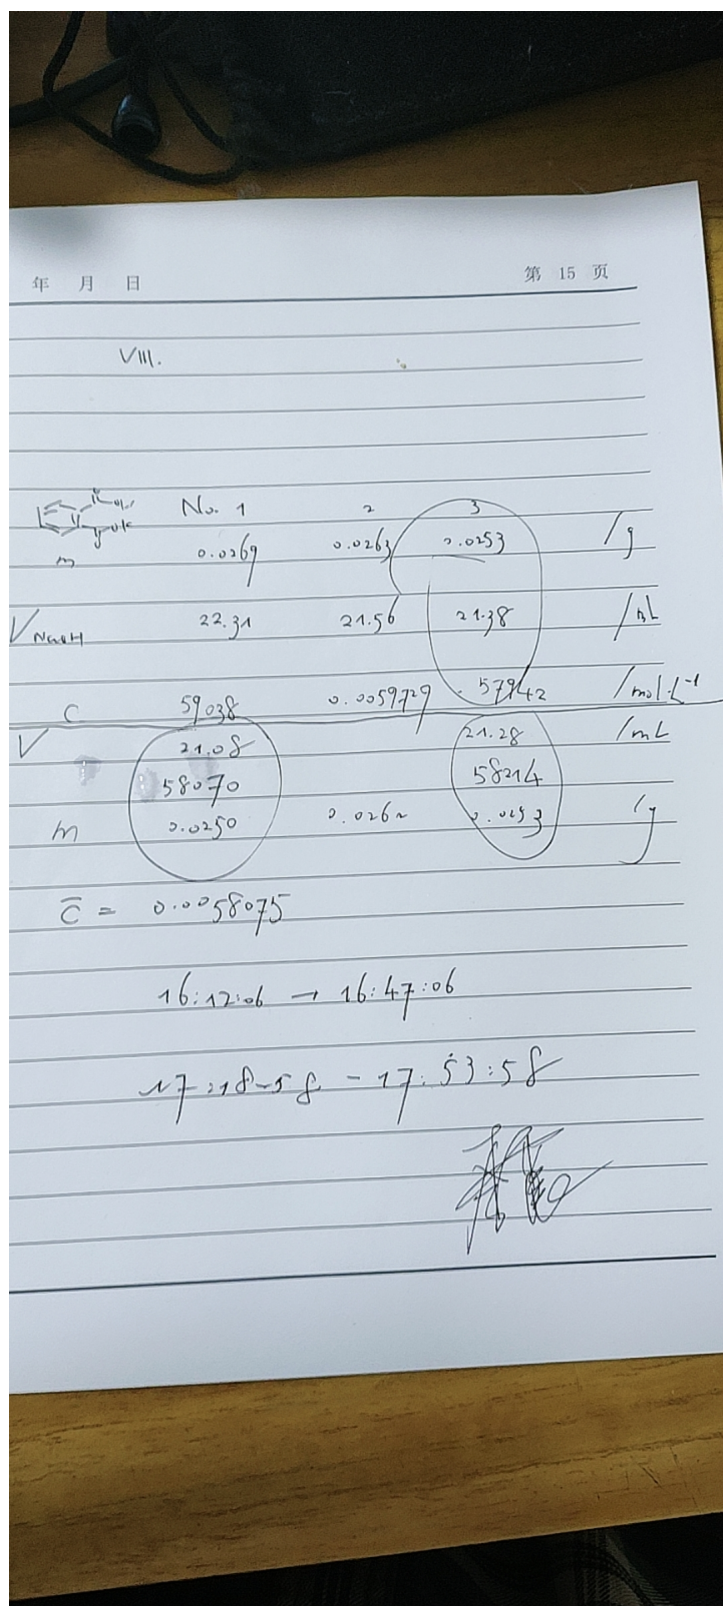 年 月 日 第 15 页
VIII.
No. 1 2 3
m 0.0269 0.0263 0.0253 /g
V NaOH 22.31 21.56 21.38 /mL
C 59038 0.0059729 57942 /mol·L⁻¹
V 21.08 21.28 /mL
58070 58214
m 0.0250 0.0262 0.0253 /g
c̄ = 0.0058075
16:12:06 → 16:47:06
17:18:58 - 17:53:58